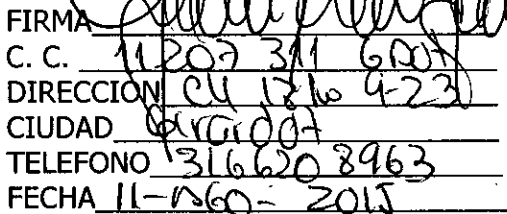 FIRMA
C. C. 11207 311 GDOT
DIRECCION CLL 12 No 9-23
CIUDAD Girardot
TELEFONO 316620 8963
FECHA 11-AGO- 2015